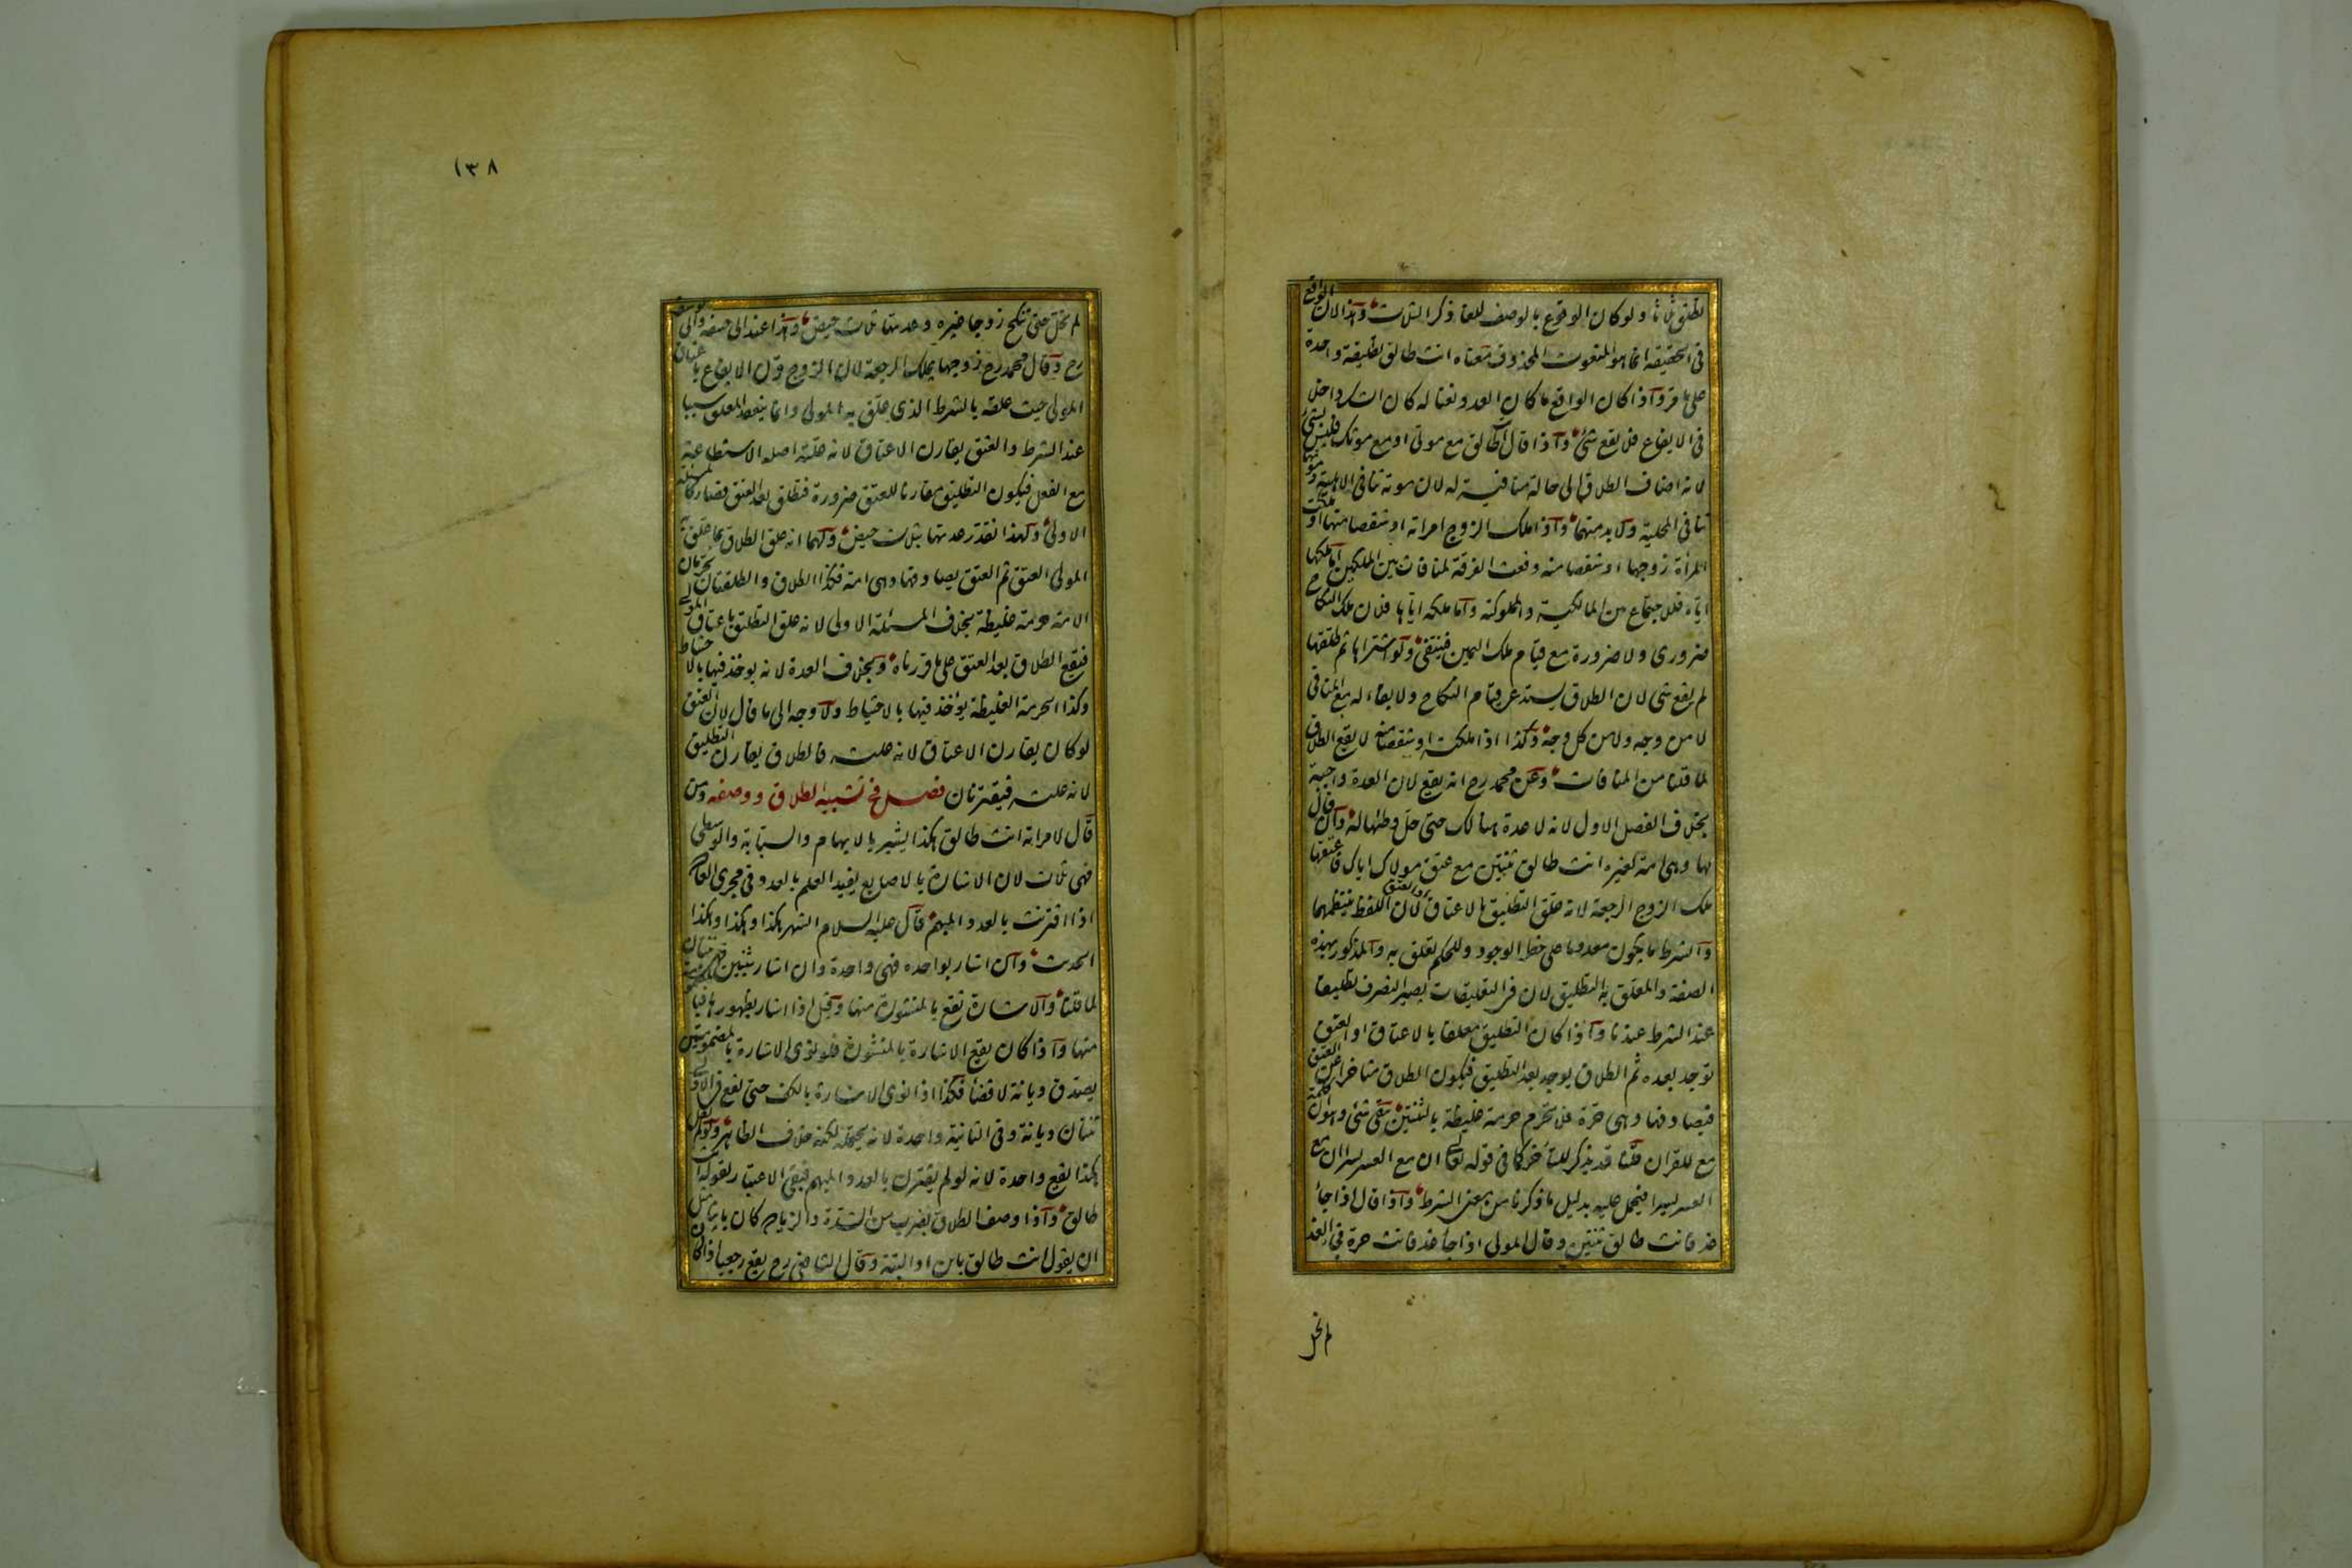 تطلق ثلاثا ولو كان الوقوع بالوصف للغا ذكر الثلاث وهذا لان الواقع
فى الحقيقة انما هو المنعوت المحذوف معناه انت طالق تطليقة واحدة
على ما مر واذا كان الواقع ما كان العدد نعتا له كان الشك داخلا
فى الايقاع فلا يقع شئ واذا قال انت طالق مع موتى او مع موتك فليس بشئ
لانه اضاف الطلاق الى حالة منافية له لان موته تنافى الاهلية وموتها
تنافى المحلية ولا بد منهما واذا ملك الزوج امراته او شقصا منها او ملكت
المرأة زوجها او شقصا منه وقعت الفرقة لمنافات بين الملكين اما ملكها
اياه فللاجتماع بين المالكية والمملوكية واما ملكه اياها فلان ملك النكاح
ضرورى ولا ضرورة مع قيام ملك اليمين فينتفى ولو اشتراها ثم طلقها
لم يقع شى لان الطلاق يستدعى قيام النكاح ولا بقاء له مع المنافى
لا من وجه ولا من كل وجه وكذا اذا ملكته او شقصا منه لا يقع الطلاق
لما قلنا من المنافات وعن محمد رح انه يقع لان العدة واجبة
بخلاف الفصل الاول لانه لا عدة هنالك حتى حل وطئها له وان قال
لها وهى امة لغيره انت طالق ثنتين مع عتق مولاك اياك فاعتقها
ملك الزوج الرجعة لانه علق التطليق بالاعتاق او العتق لان اللفظ ينتظمهما
والشرط ما يكون معدوما على خطر الوجود وللحكم تعلق به والمذكور بهذه
الصفة والمعلق به التطليق لان فى التعليقات يصير التصرف تطليقا
عند الشرط عندنا واذا كان التطليق معلقا بالاعتاق او العتق
يوجد بعده ثم الطلاق يوجد بعد التطليق فيكون الطلاق متاخرا عن العتق
فيصادفها وهى حرة فلا تحرم حرمة غليظة بالثنتين بقى شئ وهو ان كلمة
مع للقران قلنا قد يذكر للتأخر كما فى قوله تعالى ان مع العسر يسرا ان مع
العسر يسرا فيحمل عليه بدليل ما ذكرنا من معنى الشرط واذا قال اذا جاء
غد فانت طالق ثنتين وقال المولى اذا جاء غد فانت حرة فجاء الغد
لم تحل
١٣٨
لم تحل حتى تنكح زوجا غيره وعدتها ثلاث حيض وهذا عند ابى حنيفة وابى يوسف
رح وقال محمد رح زوجها يملك الرجعة لان الزوج قرن الايقاع باعتاق
المولى حيث علقه بالشرط الذى علق به المولى وانما ينعقد المعلق سببا
عند الشرط والعتق يقارن الاعتاق لانه علته اصله الاستطاعة
مع الفعل فيكون التطليق مقارنا للعتق ضرورة فتطلق بعد العتق فصار كالمسئلة
الاولى ولهذا تقدر عدتها بثلاث حيض ولهما انه علق الطلاق بما علق به
المولى العتق ثم العتق يصادفها وهى امة فكذا الطلاق والطلقتان تحرمان
الامة حرمة غليظة بخلاف المسئلة الاولى لانه علق التطليق باعتاق المولى
فيقع الطلاق بعد العتق على ما قررناه وبخلاف العدة لانه يوخذ فيها بالاحتياط
وكذا الحرمة الغليظة يؤخذ فيها بالاحتياط ولا وجه الى ما قال لان العتق
لو كان يقارن الاعتاق لانه علته فالطلاق يقارن التطليق
لانه علته فيقترنان فصل فى تشبيه الطلاق ووصفه ومن
قال لامراته انت طالق هكذا يشير بالابهام والسبابة والوسطى
فهى ثلاث لان الاشارة بالاصابع يفيد العلم بالعدد فى مجرى العادة
اذا اقترنت بالعدد المبهم قال عليه السلام الشهر هكذا وهكذا وهكذا
الحديث وان اشار بواحدة فهى واحدة وان اشار بثنتين فهى ثنتان
لما قلنا والاشارة تقع بالمنشورة منها وقيل اذا اشار بظهورها فبالمضمومة
منها واذا كان يقع الاشارة بالمنشورة فلو نوى الاشارة بالمضمومتين
يصدق ديانة لا قضاء فكذا اذا نوى الاشارة بالكف حتى تقع فى الاولى
ثنتان ديانة وفى الثانية واحدة لانه يحتمله لكنه خلاف الظاهر ولو لم يقل
هكذا تقع واحدة لانه لو لم يقترن بالعدد المبهم فبقى الاعتبار لقوله انت
طالق واذا وصف الطلاق بضرب من الشدة والزيادة كان باينا مثل
ان يقول انت طالق باين او البتة وقال الشافعى رح يقع رجعيا اذا كان